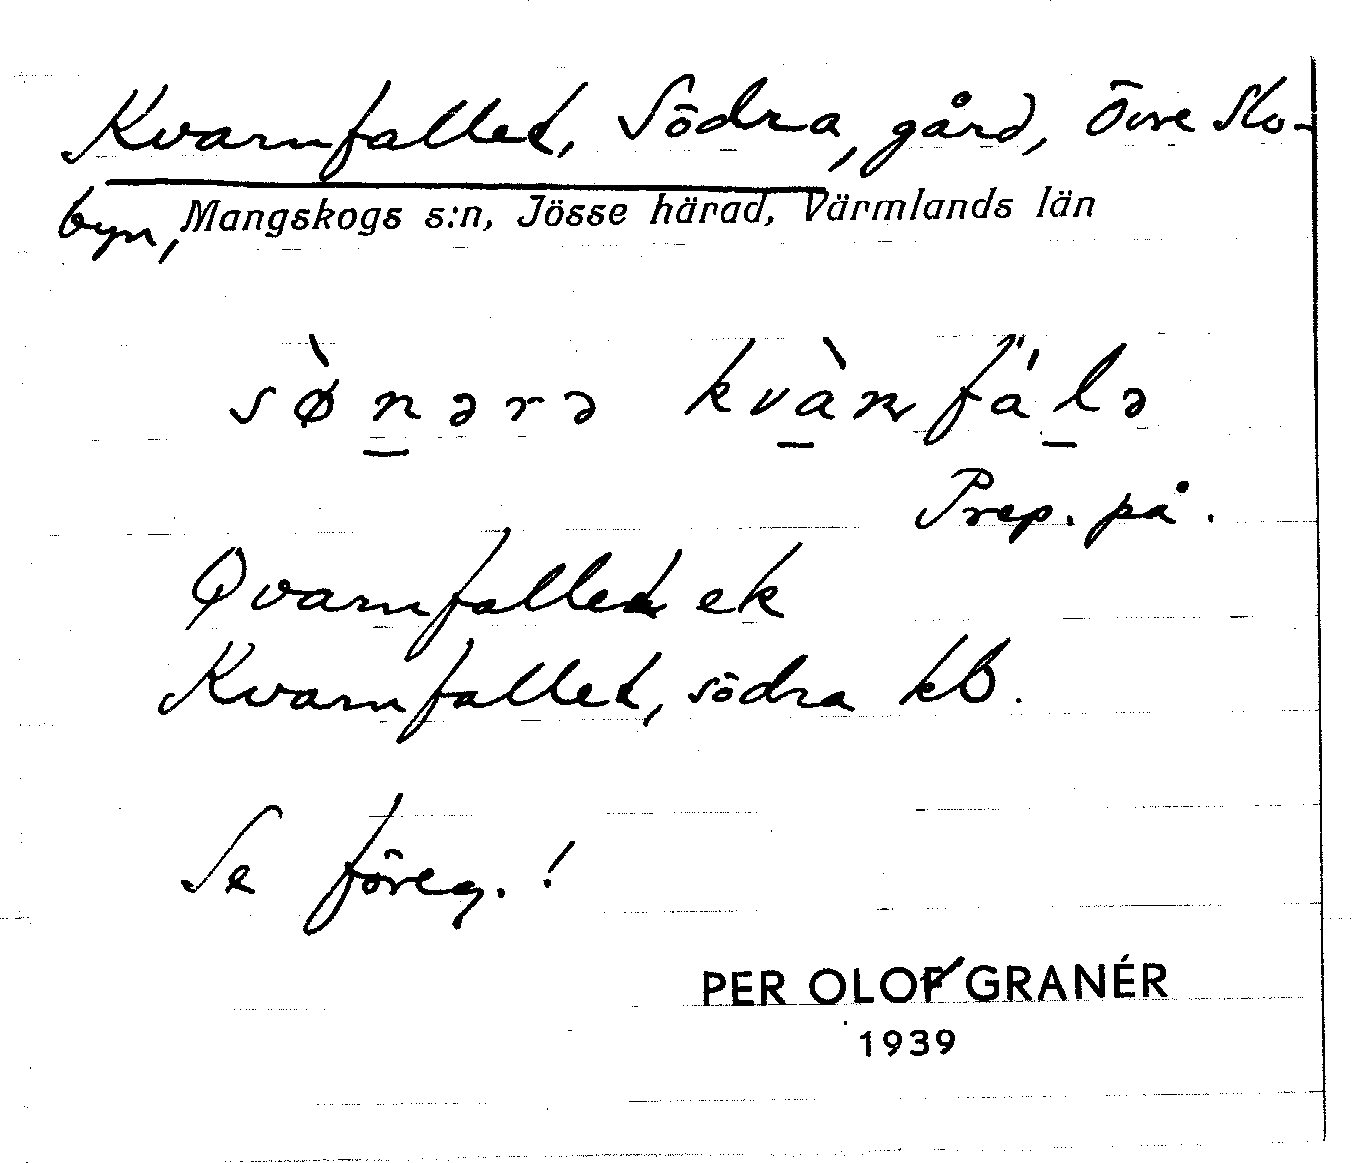 Kvarnfallet, Södra, gård, Övre Slo-
byn, Mangskogs s:n, Jösse härad, Värmlands län
sø̀nərə kvàɳfälə
Prep. på.
Qvarnfallet ek
Kvarnfallet, södra kb.
Se föreg.!
PER OLOF GRANÉR
1939